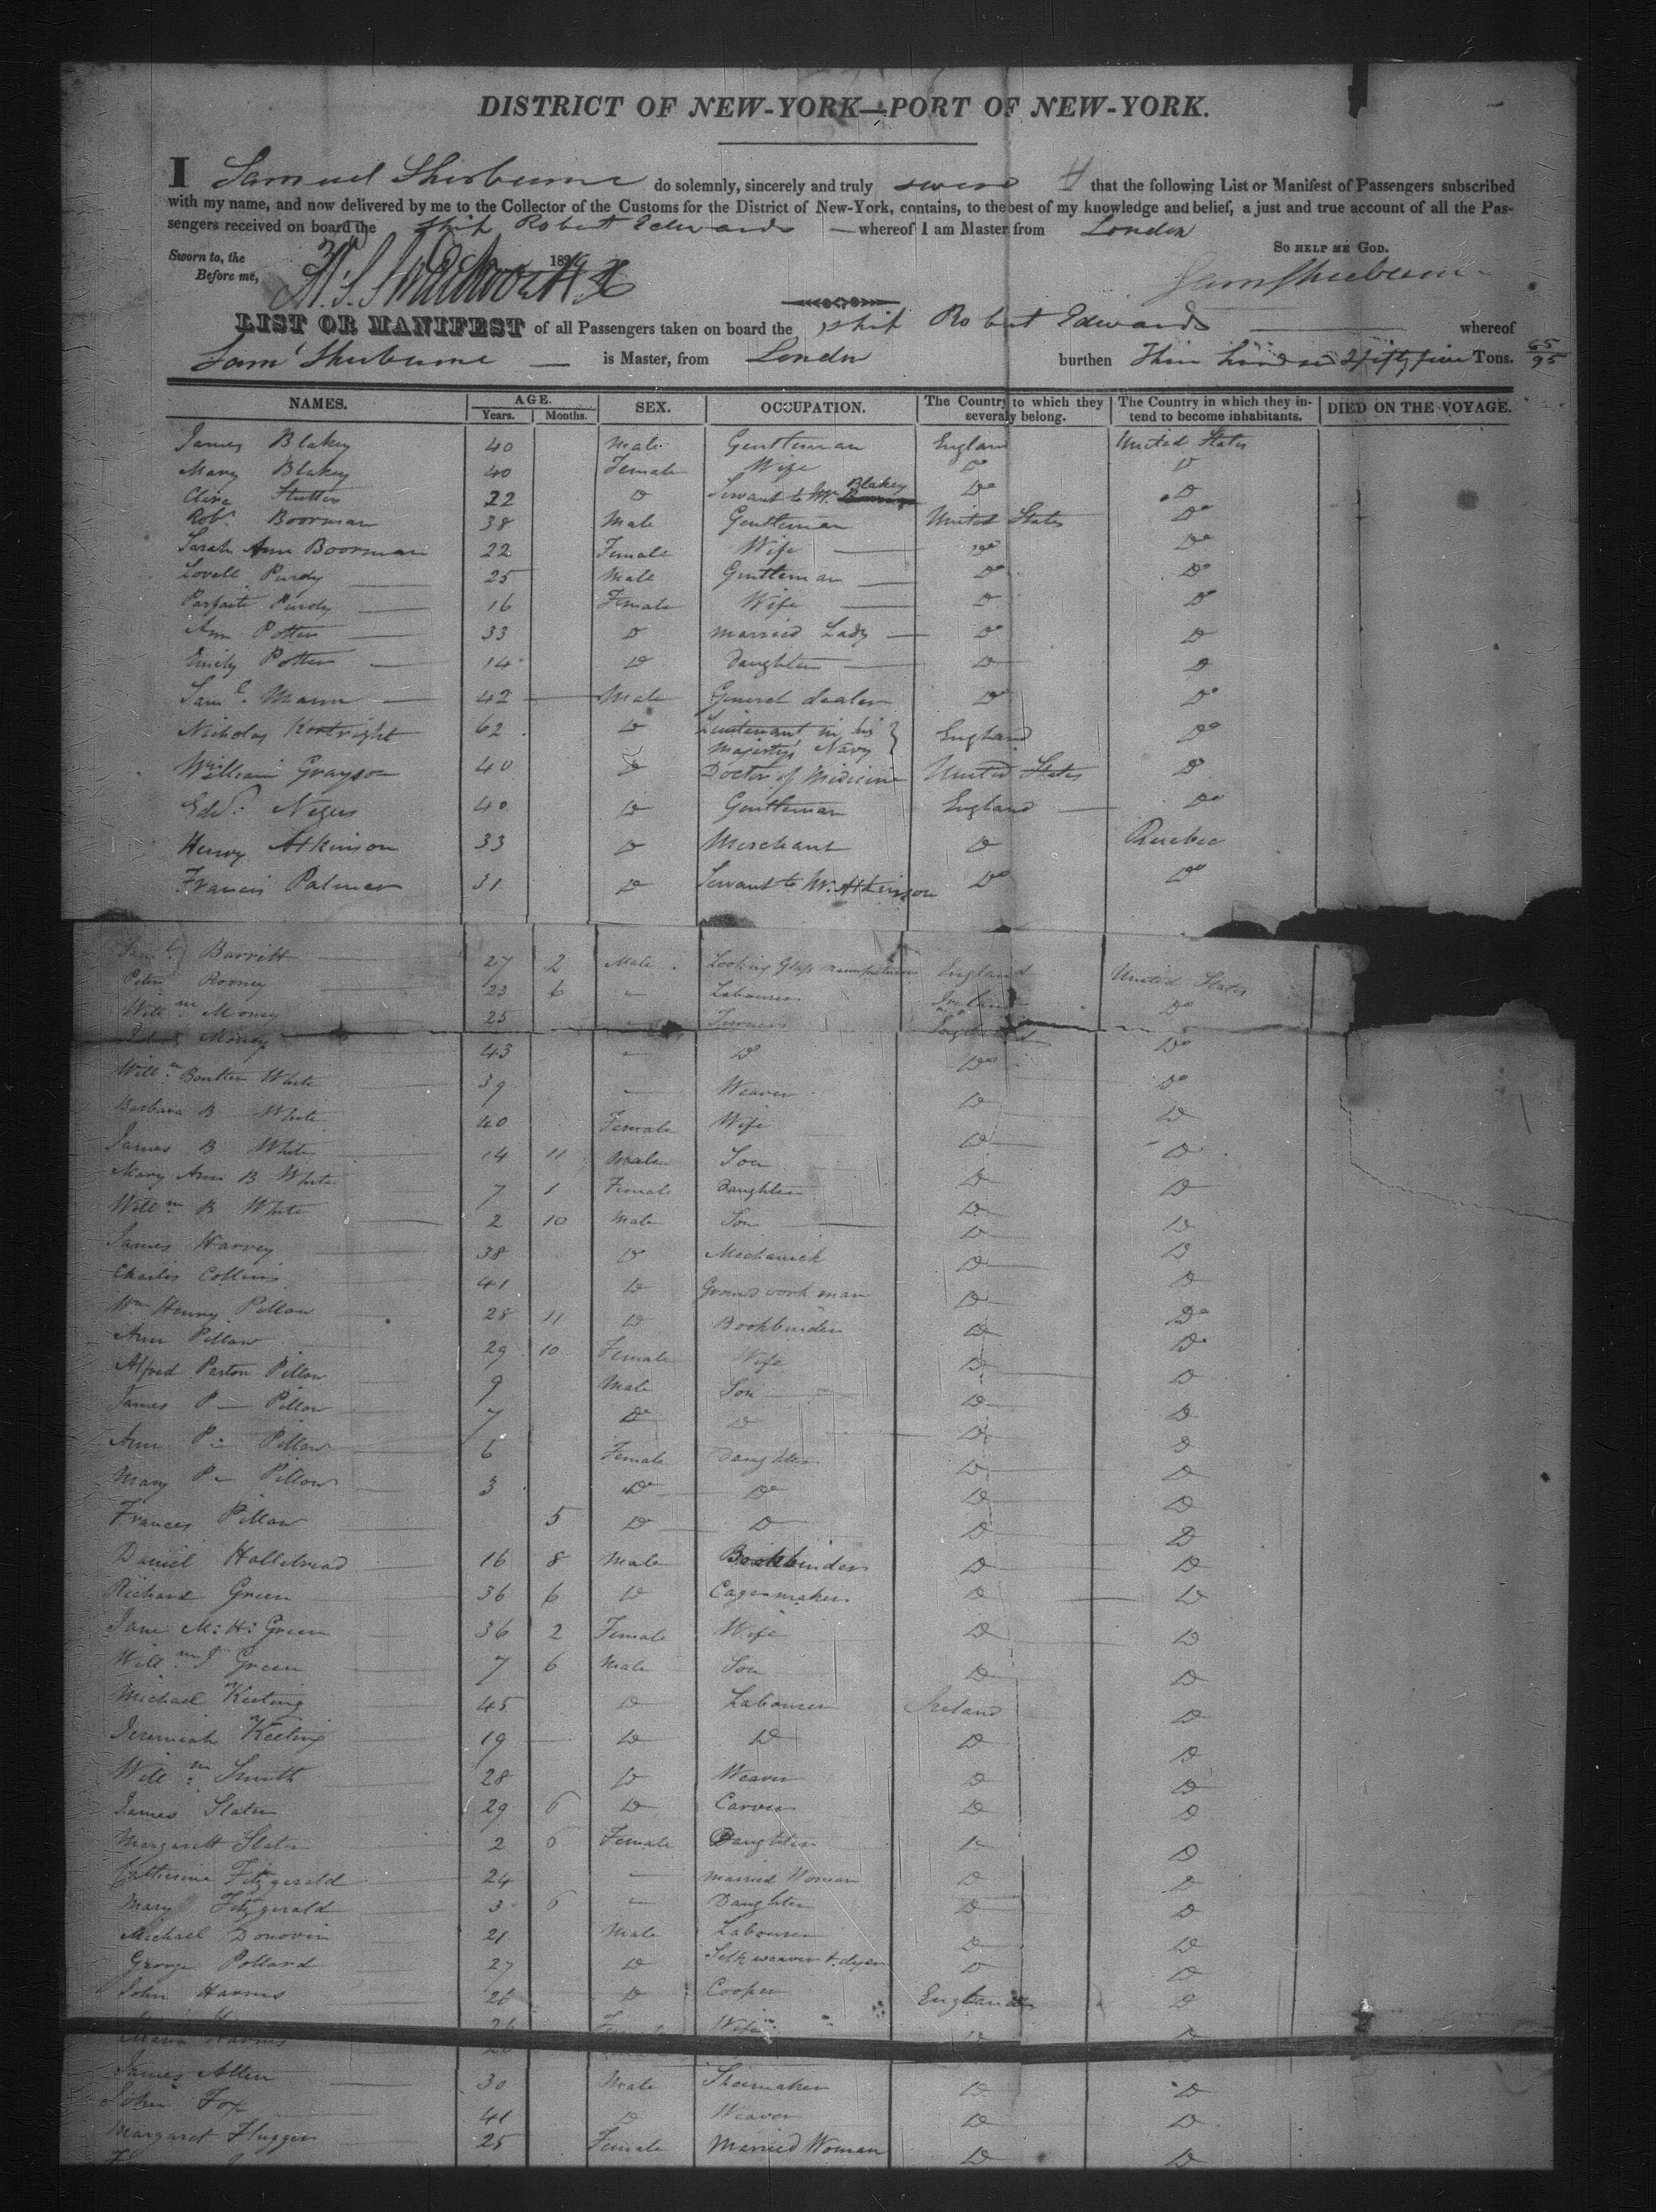 DISTRICT OF NEW-YORK—PORT OF NEW-YORK.
I Samuel Sherburne do solemnly, sincerely and truly swear that the following List or Manifest of Passengers subscribed
with my name, and now delivered by me to the Collector of the Customs for the District of New-York, contains, to the best of my knowledge and belief, a just and true account of all the Pas-
sengers received on board the Ship Robert Edwards whereof I am Master from London
So HELP ME GOD.
Sworn to, the 18
Before me,
Sam Sherburne
LIST OR MANIFEST of all Passengers taken on board the Ship Robert Edwards whereof
Saml Sherburne is Master, from London burthen Three hundred & fifty five Tons. 65/95
NAMES. AGE. Years. Months. SEX. OCCUPATION. The Country to which they severaly belong. The Country in which they intend to become inhabitants. DIED ON THE VOYAGE.
James Blakey 40 Male Gentleman England United States
Mary Blakey 40 Female Wife Do Do
22 Do Servant to Mr Blakey Do Do
Robt Boorman 38 Male Gentleman United States Do
Sarah Ann Boorman 22 Female Wife Do Do
Lovell Purdy 25 Male Gentleman Do Do
Parfaite Purdy 16 Female Wife Do Do
Ann Potter 33 Do Married Lady Do Do
Emily Potter 14 Do Daughter Do Do
Saml Mann 42 Male General dealer Do Do
Nicholas Kortright 62 Do Lieutenant in his Majestys Navy England Do
William Grayson 40 Do Doctor of Medicine United States Do
Edwd Negus 40 Do Gentleman England Do
Henry Atkinson 33 Do Merchant Do Quebec
Francis Palmer 31 Do Servant to Mr Atkinson Do Do
Saml Barritt 27 2 Male Looking Glass manufacturer England United States
Peter Rooney 23 6 Labourer Ireland Do
Willm Money 25 Turner England
Money 43 Do Do Do
Willm Boulton White 39 Weaver Do Do
Barbara B White 40 Female Wife Do Do
James B White 14 11 Male Son Do Do
Mary Ann B White 7 1 Female Daughter Do Do
Willm B White 2 10 Male Son Do Do
James Harvey 38 Do Mechanick Do Do
Charles Collins 41 Do Ground work man Do Do
Wm Henry Pillow 28 11 Do Bookbinder Do Do
Ann Pillow 29 10 Female Wife Do Do
Alfred Paxton Pillow 9 Male Son Do Do
James P Pillow 7 Do Do Do Do
Ann P Pillow 6 Female Daughter Do Do
Mary P Pillow 3 Do Do Do Do
Frances Pillow 5 Do Do Do Do
Daniel Hallibread 16 8 Male Bookbinder Do Do
Richard Green 36 6 Do Cagemaker Do Do
Jane M: H: Green 36 2 Female Wife Do Do
Willm J Green 7 6 Male Son Do Do
Michael Keeting 45 Do Labourer Ireland Do
Jeremiah Keeting 19 Do Do Do Do
Willm Smith 28 Do Weaver Do Do
James Slater 29 6 Do Carver Do Do
Margarett Slater 2 6 Female Daughter Do Do
Catherine Fitzgerald 24 Married Woman Do Do
Mary Fitzgerald 3 6 Daughter Do Do
Michael Donovin 21 Male Labourer Do Do
George Pollard 27 Do Silk weaver & dyer Do Do
John Harms 26 Do Cooper England Do
Maria Harms 26 Female Wife Do Do
James Allen 30 Male Shoemaker Do Do
John Fox 41 Do Weaver Do Do
Margaret Fluggen 25 Female Married Woman Do Do